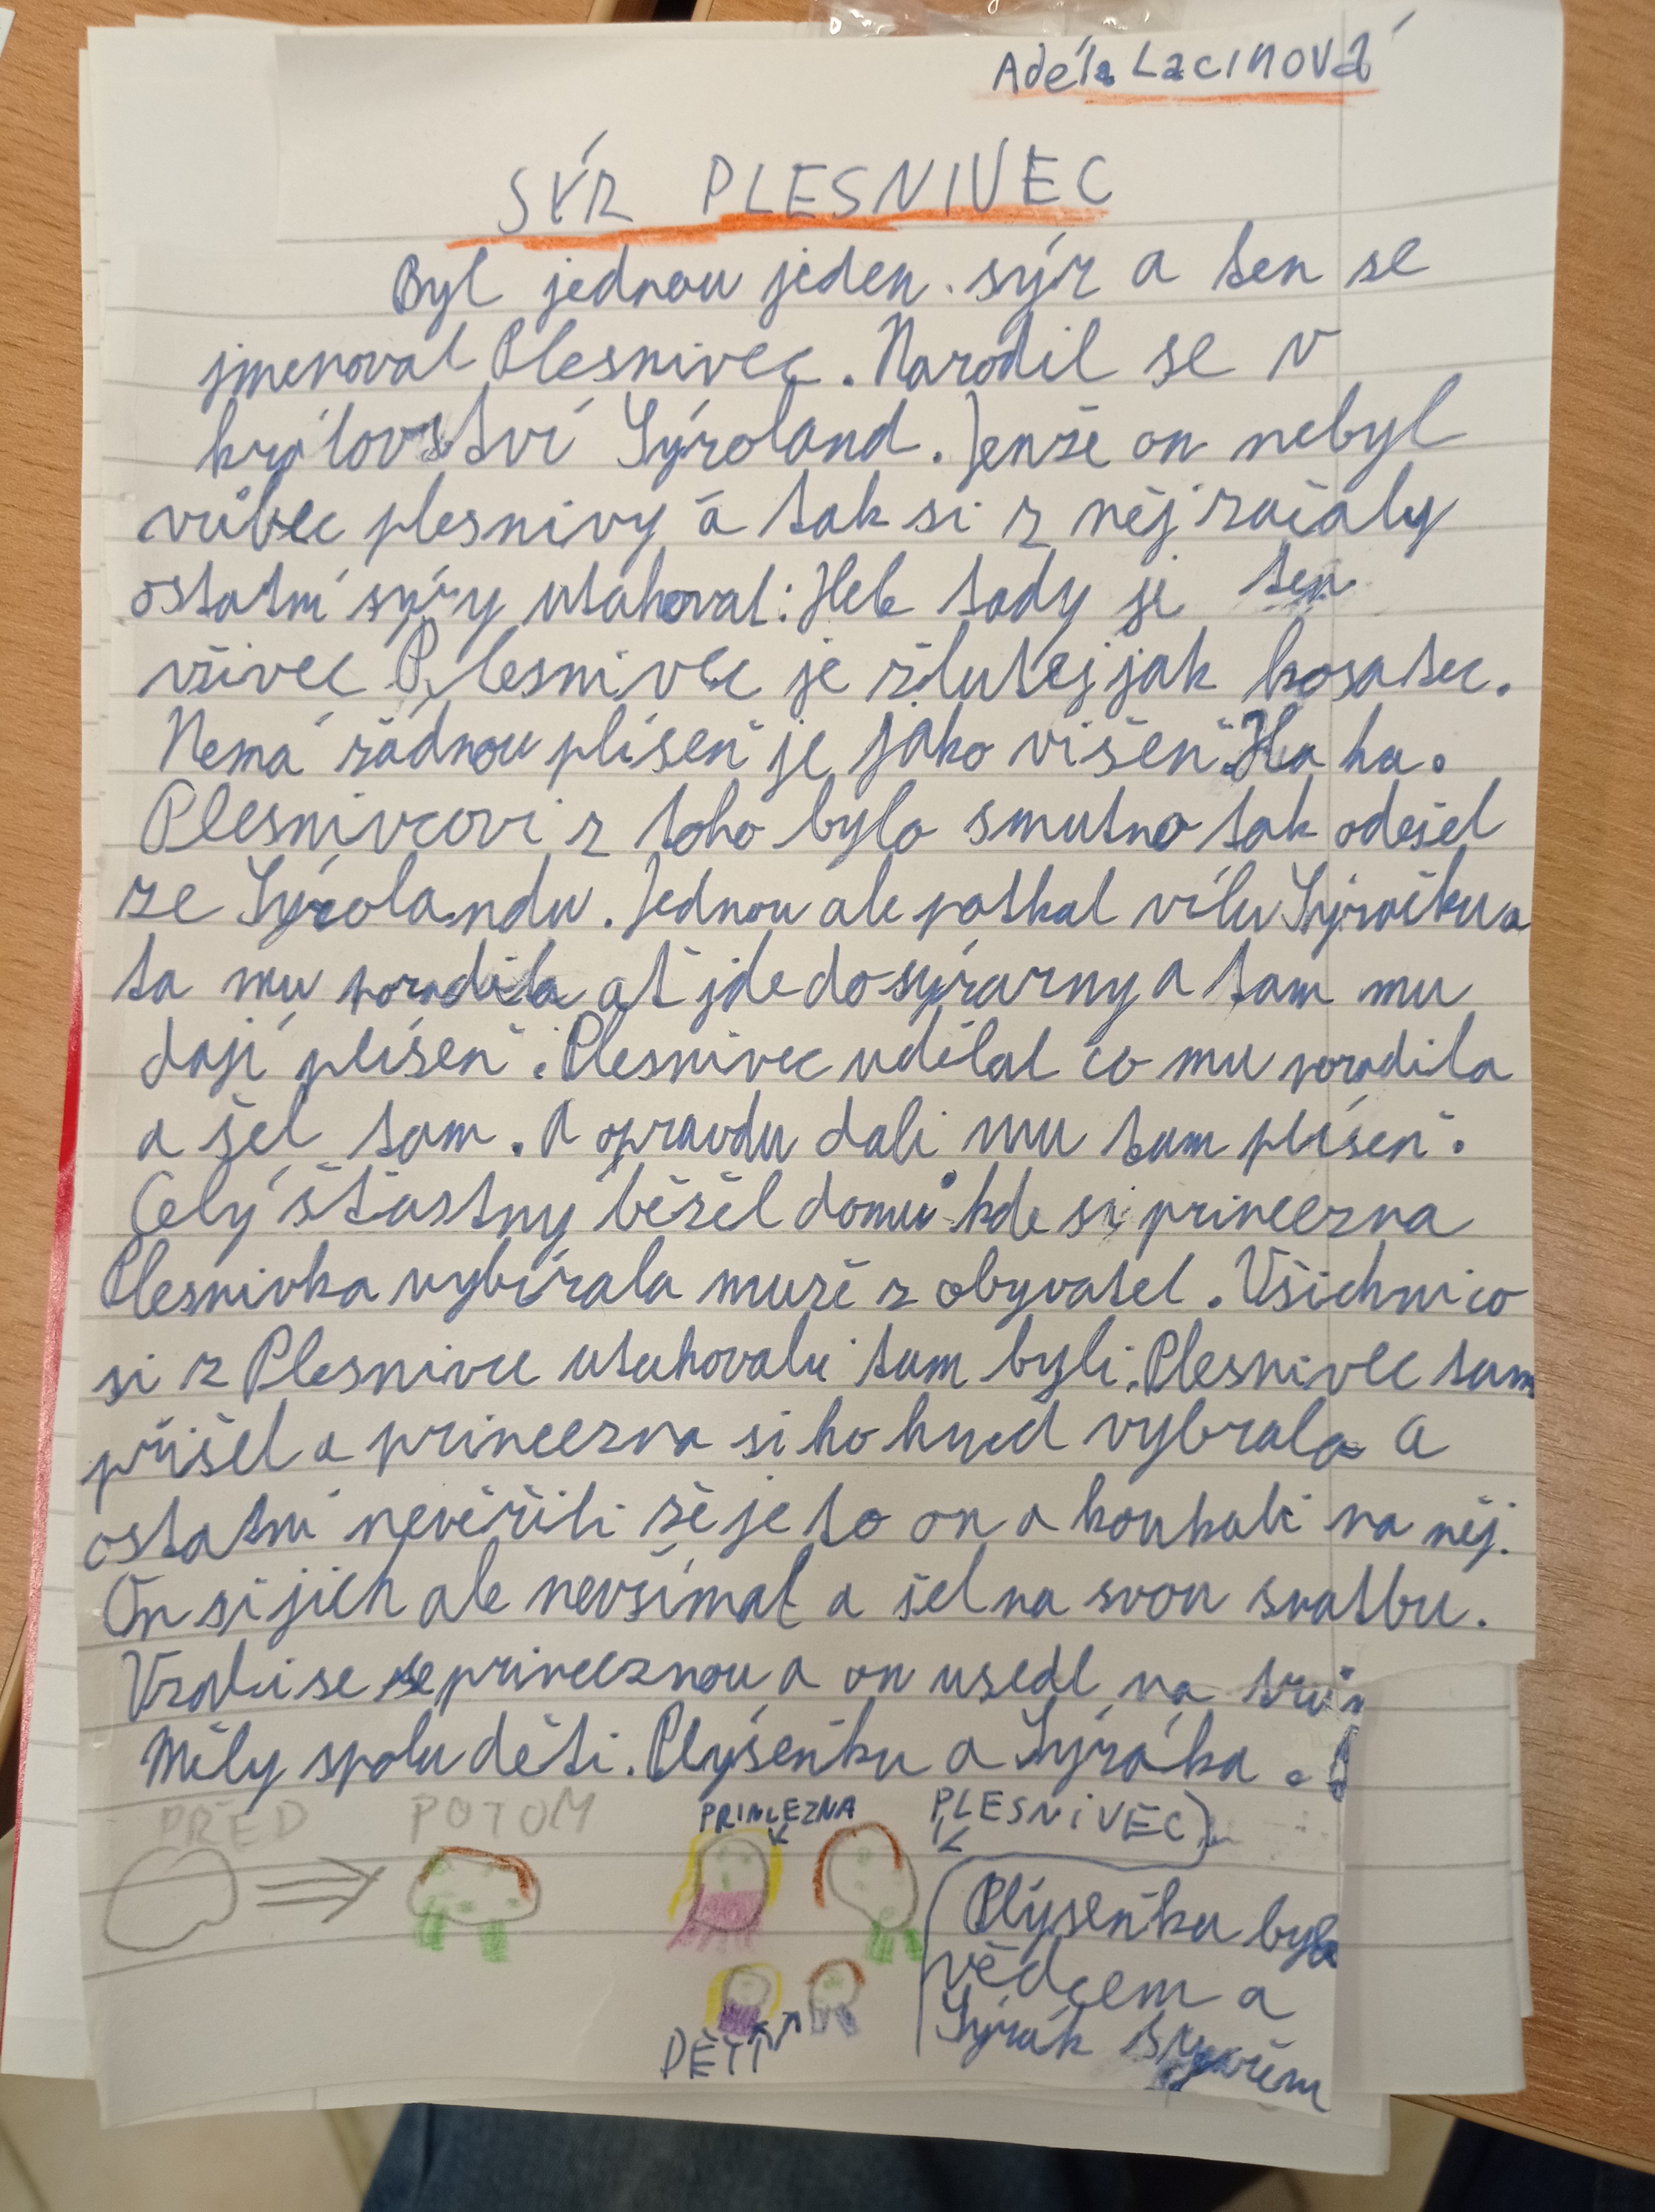 Adéla Lacinová
SÝR PLESNIVEC
Byl jednou jeden sýr a ten se
jmenoval Plesnivec. Narodil se v
království Sýroland. Jenže on nebyl
vůbec plesnivý a tak si z něj začaly
ostatní sýry utahovat: Hele tady je ten
všivec Plesnivec je žlutej jak kosatec.
Nemá žádnou plíseň je jako višeň. Ha ha.
Plesnivcovi z toho bylo smutno tak odešel
ze Sýrolandu. Jednou ale potkal vílu Sýračku a
ta mu poradila ať jde do sýrárny a tam mu
dají plíseň. Plesnivec udělal co mu poradila
a šel tam. A opravdu dali mu tam plíseň.
Celý šťastný běžel domů kde si princezna
Plesnivka vybírala muže z obyvatel. Všichni co
si z Plesnivce utahovali tam byli. Plesnivec tam
přišel a princezna si ho hned vybrala a
ostatní nevěřili že je to on a koukali na něj.
On si jich ale nevšímal a šel na svou svatbu.
Vzali se se princeznou a on usedl na trůn
Měly spolu děti. Plýseňku a Sýráka.
PŘED POTOM PRINCEZNA PLESNIVEC
Plýseňka byla
vědcem a
Sýrák
DĚTI